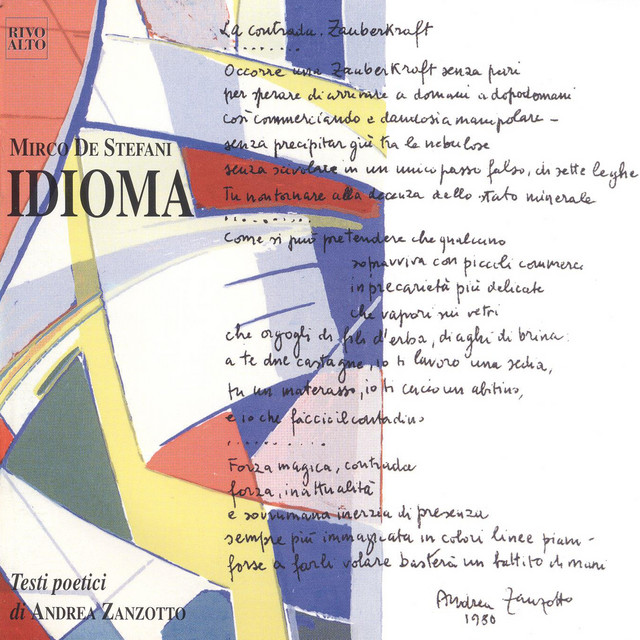 RIVO
ALTO
MIRCO DE STEFANI
IDIOMA
La contrada. Zauberkraft
. . . . . . . . .
Occorre una Zauberkraft senza pari
per sperare di arrivare a domani a dopodomani
così commerciando e dandosi a manipolare –
senza precipitar giù tra le nebulose
senza scivolare in un unico passo falso, di sette leghe
Tu non tornare alla decenza dello stato minerale
. . . . . . . . .
Come si può pretendere che qualcuno
sopravviva con piccoli commerci
in precarietà più delicate
che vapori sui vetri
che orgogli di fili d'erba, di aghi di brina:
a te due castagne, io ti lavoro una sedia,
tu un materasso, io ti cucio un abitino,
e io che faccio il contadino
. . . . . . . . .
Forza magica, contrada
forza, inattualità
e sovrumana inerzia di presenza
sempre più immaginata in colori linee piani –
forse a farli volare basterà un battito di mani
Andrea Zanzotto
1980
Testi poetici
di ANDREA ZANZOTTO